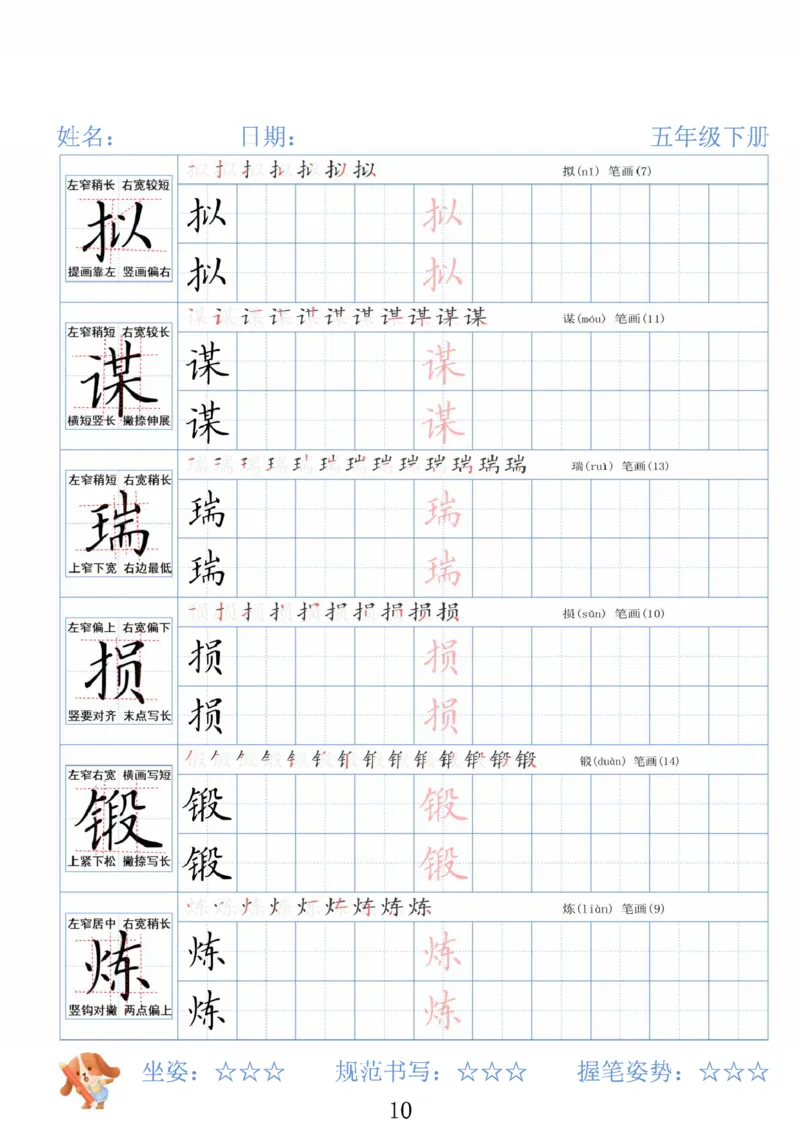 姓名： 日期： 五年级下册
拟(nǐ) 笔画(7)
左窄稍长 右宽较短
拟 拟 拟
拟 拟
提画靠左 竖画偏右
谋(móu) 笔画(11)
左窄稍短 右宽较长
谋 谋 谋
谋 谋
横短竖长 撇捺伸展
瑞(ruì) 笔画(13)
左窄稍短 右宽稍长
瑞 瑞 瑞
瑞 瑞
上窄下宽 右边最低
损(sǔn) 笔画(10)
左窄偏上 右宽偏下
损 损 损
损 损
竖要对齐 末点写长
锻(duàn) 笔画(14)
左窄右宽 横画写短
锻 锻 锻
锻 锻
上紧下松 撇捺写长
炼(liàn) 笔画(9)
左窄居中 右宽稍长
炼 炼 炼
炼 炼
竖钩对撇 两点偏上
坐姿：☆☆☆ 规范书写：☆☆☆ 握笔姿势：☆☆☆
10